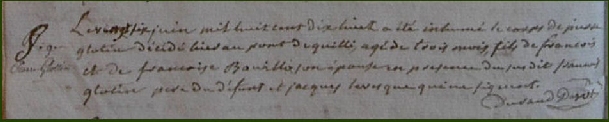 Le vingt six juin mil huit cent dix huit a été inhumé le corps de pierre
glotin décédé hier au pont de quilli, agé de trois mois, fils de francois
et de francoise Bouillis, son épouse en presence du susdit francois
glotin pere du défunt et jacques levesque qui ne signent.
Durand